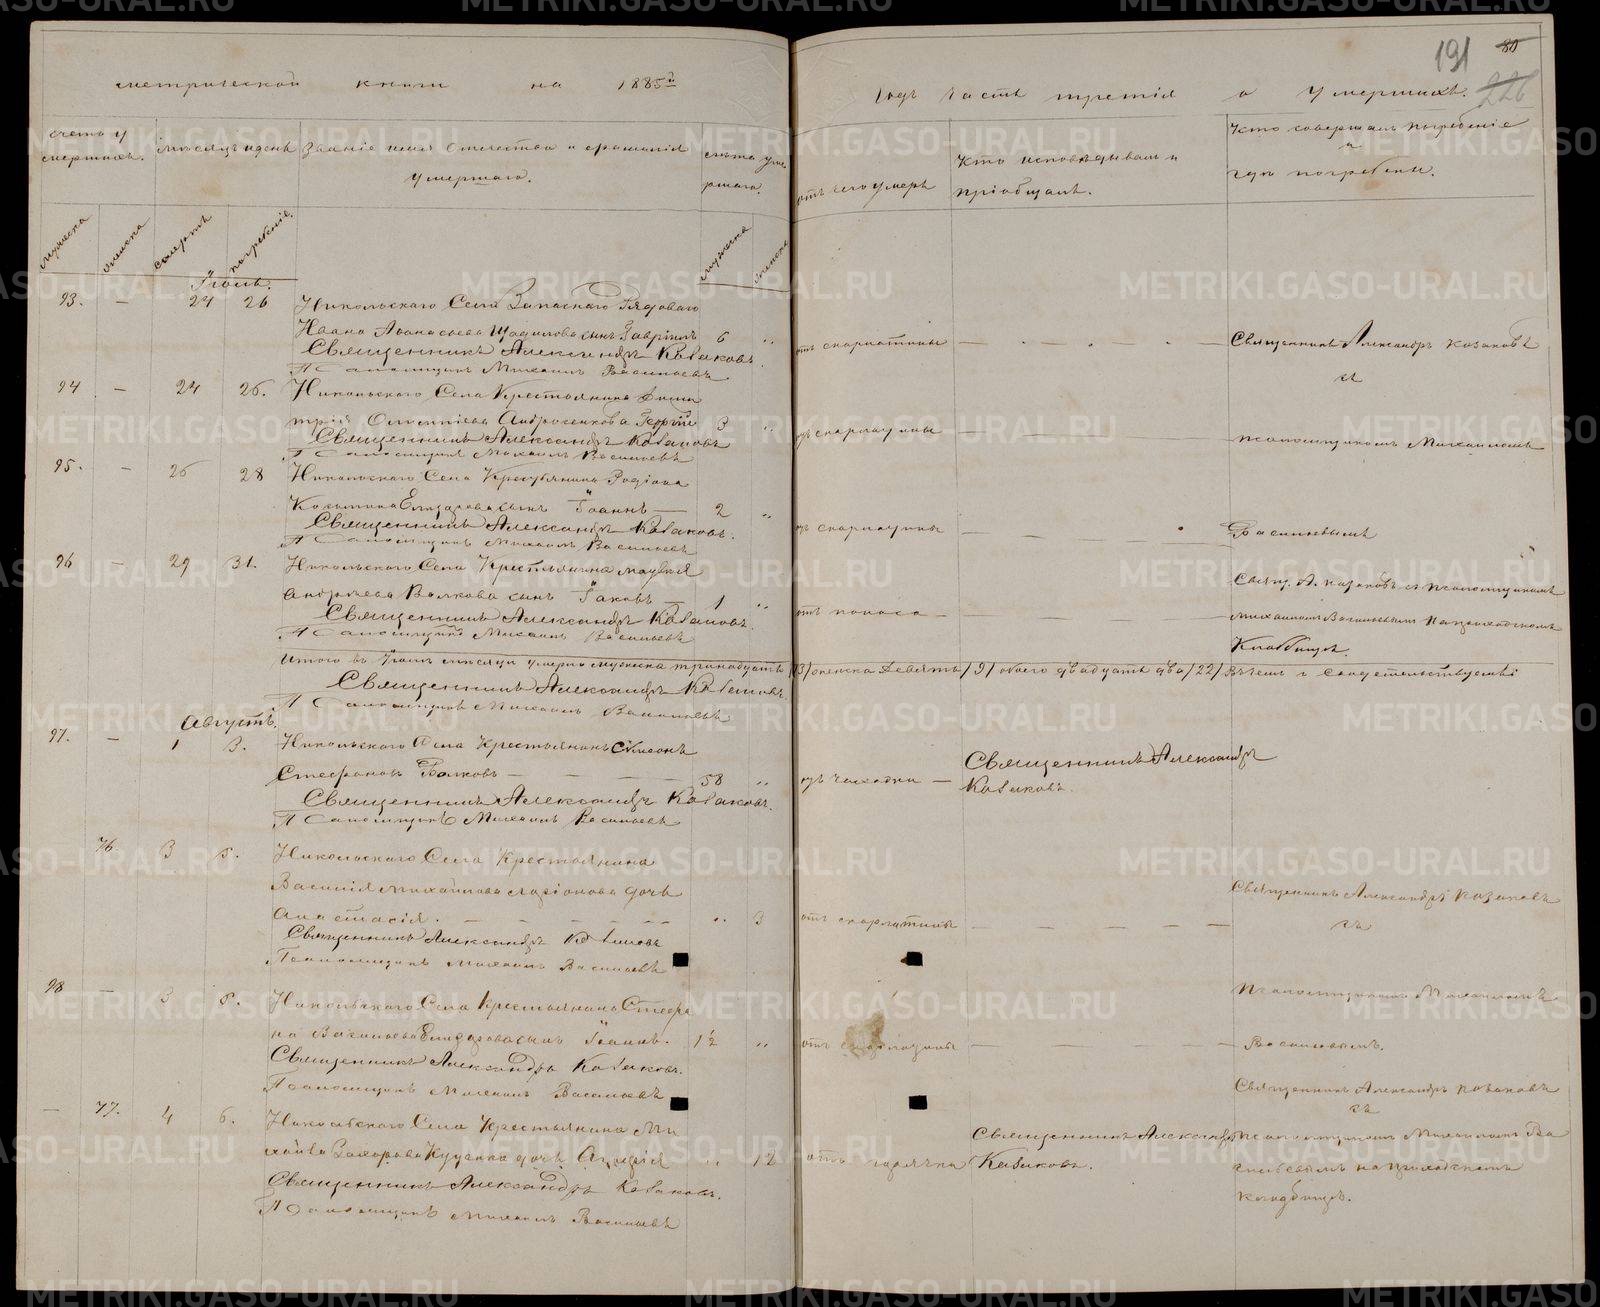 метрической книги на 1885й
годъ часть третія о умершихъ.
191
80
226
счетъ умершихъ.
мѣсяцъ и день
Званіе имя Отчество и фамилія умершаго.
лѣта умершаго.
отъ чего умеръ
Кто исповѣдывалъ и пріобщалъ.
Кто совершалъ погребеніе и гдѣ погребены.
мужеска
женска
смерть
погребеніе.
мужеска
женска
Іюль.
93. — 24 26
Никольскаго Села Запаснаго Рядоваго
Ивана Аѳанасьева сынъ Гавріилъ 6 „
отъ скарлатины
Священникъ Александръ Казаковъ
Священникъ Александръ Казаковъ
Псаломщикъ Михаилъ Васильевъ
съ
94 — 24 26.
Никольскаго Села Крестьянина
Георгій 3 „
отъ скарлатины
Священникъ Александръ Казаковъ
Псаломщикъ Михаилъ Васильевъ
псаломщикомъ Михаиломъ
95. — 26 28
Никольскаго Села Крестьянина Родіона
Козьмина сынъ Іоаннъ — 2 „
отъ скарлатины
Священникъ Александръ Казаковъ.
Псаломщикъ Михаилъ Васильевъ
Васильевымъ
96 — 29 31.
Никольскаго Села Крестьянина
Андреева Волкова сынъ Іаковъ — 1 „
отъ поноса
Священникъ Александръ Казаковъ.
Псаломщикъ Михаилъ Васильевъ
Свящ. А. Казаковъ съ псаломщикомъ
Михаиломъ Васильевымъ на приходскомъ
Кладбищѣ.
Итого въ Іюлѣ мѣсяцѣ умерло мужеска тринадцать /13/ женска девять /9/ обоего двадцать два /22/ Въ чемъ и свидетельствуемъ:
Священникъ Александръ Казаковъ.
Псаломщикъ Михаилъ Васильевъ
Августъ.
97. — 1 3.
Никольскаго Села Крестьянинъ Симеонъ
Стефановъ Волковъ — 58 „
отъ чахотки —
Священникъ Александръ
Казаковъ.
Священникъ Александръ Казаковъ.
Псаломщикъ Михаилъ Васильевъ
76. 3 5.
Никольскаго Села Крестьянина
Василія Михайлова Ларіонова дочь
Анастасія. „ 3
отъ скарлатины
Священникъ Александръ Казаковъ
съ
Священникъ Александръ Казаковъ
Псаломщикъ Михаилъ Васильевъ
98 — 3 5.
Никольскаго Села Крестьянина Стефа
на Васильева сынъ Іоаннъ. 1½ „
отъ скарлатины
Псаломщикомъ Михаиломъ
Васильевымъ.
Священникъ Александръ Казаковъ.
Псаломщикъ Михаилъ Васильевъ
— 77. 4 6.
Никольскаго Села Крестьянина Ми
хаила Захарова дочь „ 12
отъ горячки
Священникъ Александръ
Казаковъ.
Священникъ Александръ Казаковъ
съ
Псаломщикомъ Михаиломъ Ва
сильевымъ на приходскомъ
кладбищѣ.
Священникъ Александръ Казаковъ.
Псаломщикъ Михаилъ Васильевъ
METRIKI.GASO-URAL.RU